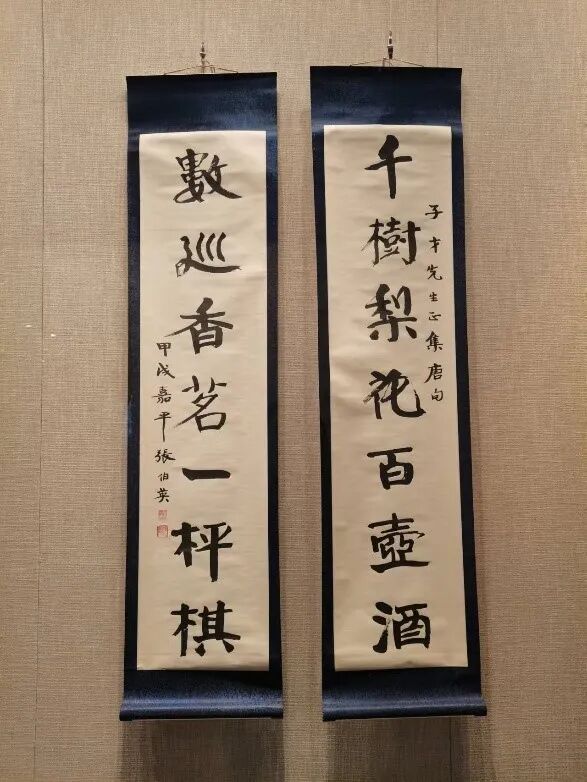 千樹梨花百壺酒
子才先生正集唐句
數巡香茗一枰棋
甲戌嘉平張伯英